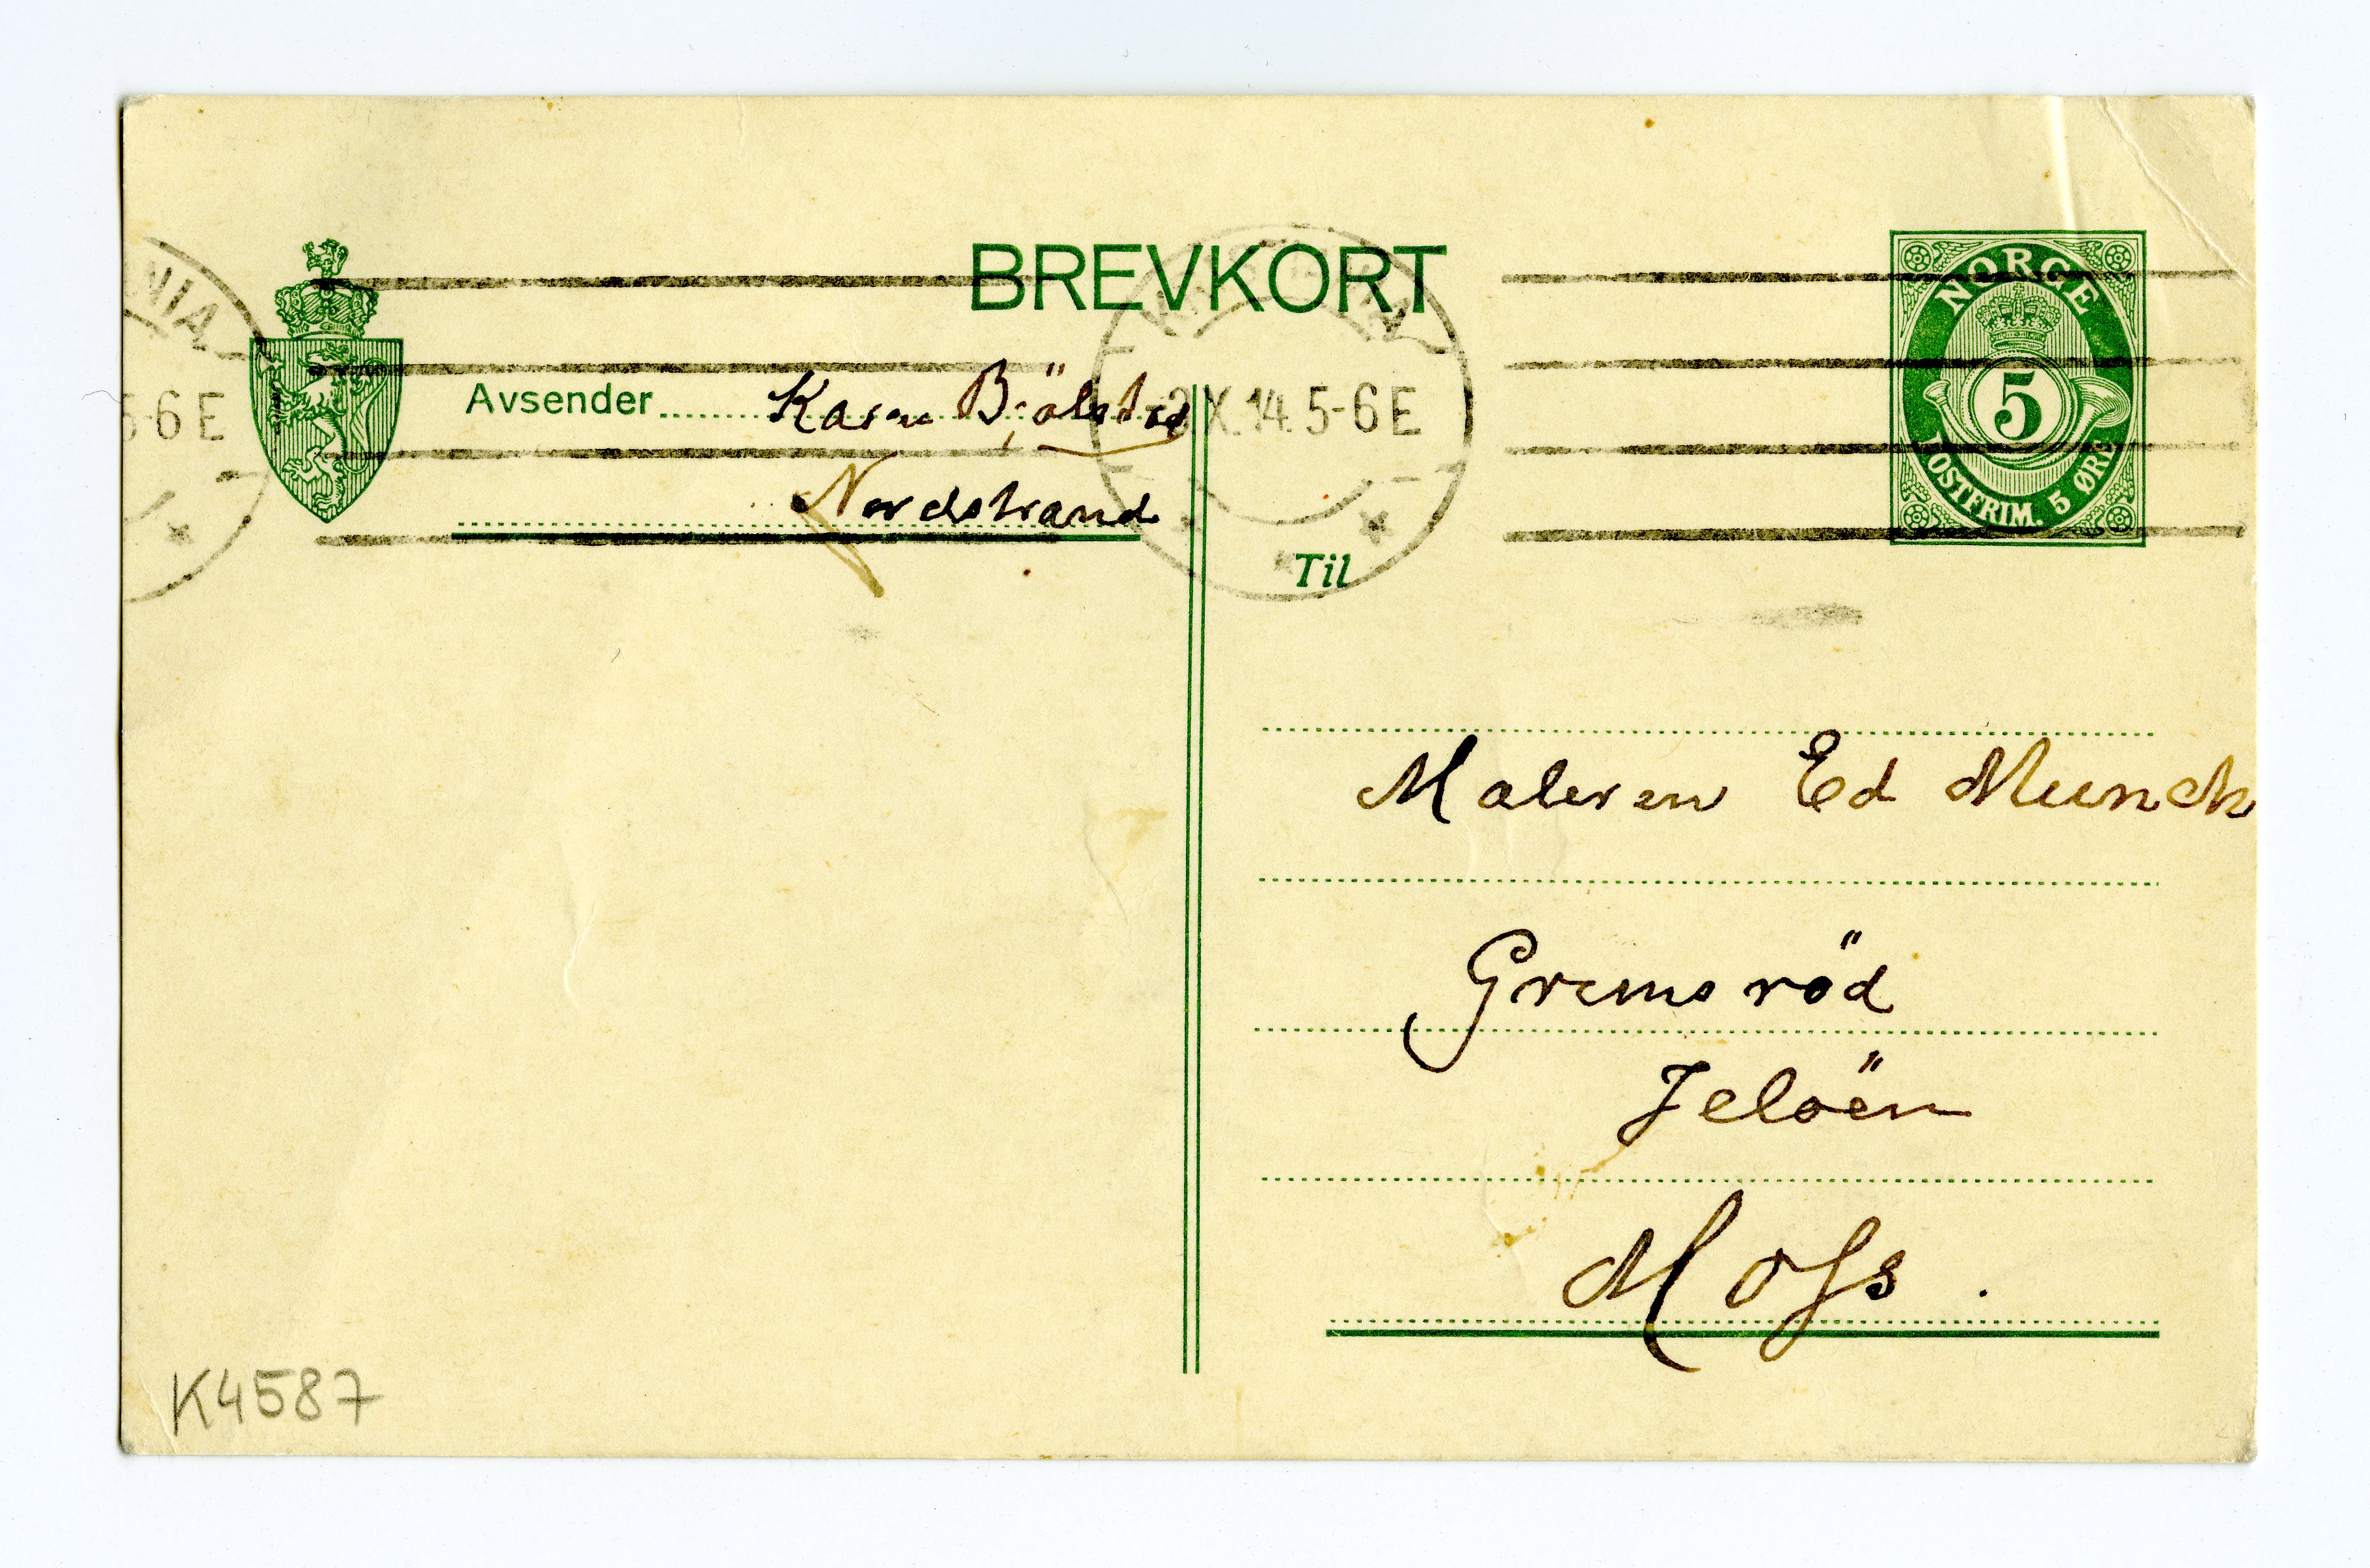 BREVKORT
NORGE
5
POSTFRIM. 5 ØRE
NIA
5-6 E
X.14. 5-6 E
Avsender Karen Bjölstad
Nordstrand
Til
Maleren Ed Munch
Grimsröd
Jelöen
Moss.
K4587